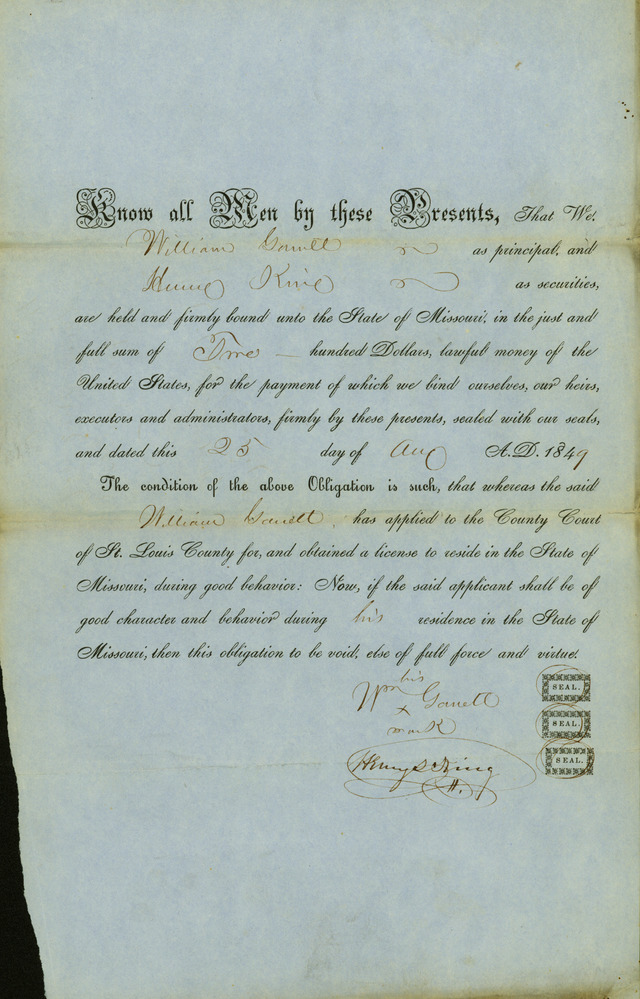 Know all Men by these Presents, That We,
William Garrett as principal, and
Henry King as securities,
are held and firmly bound unto the State of Missouri, in the just and
full sum of — hundred Dollars, lawful money of the
United States, for the payment of which we bind ourselves, our heirs,
executors and administrators, firmly by these presents, sealed with our seals,
and dated this 25 day of Aug A.D. 1849
The condition of the above Obligation is such, that whereas the said
William Garrett, has applied to the County Court
of St. Louis County for, and obtained a license to reside in the State of
Missouri, during good behavior: Now, if the said applicant shall be of
good character and behavior during his residence in the State of
Missouri, then this obligation to be void, else of full force and virtue.
his
Wm x Garrett
mark
SEAL.
SEAL.
Henry King
SEAL.